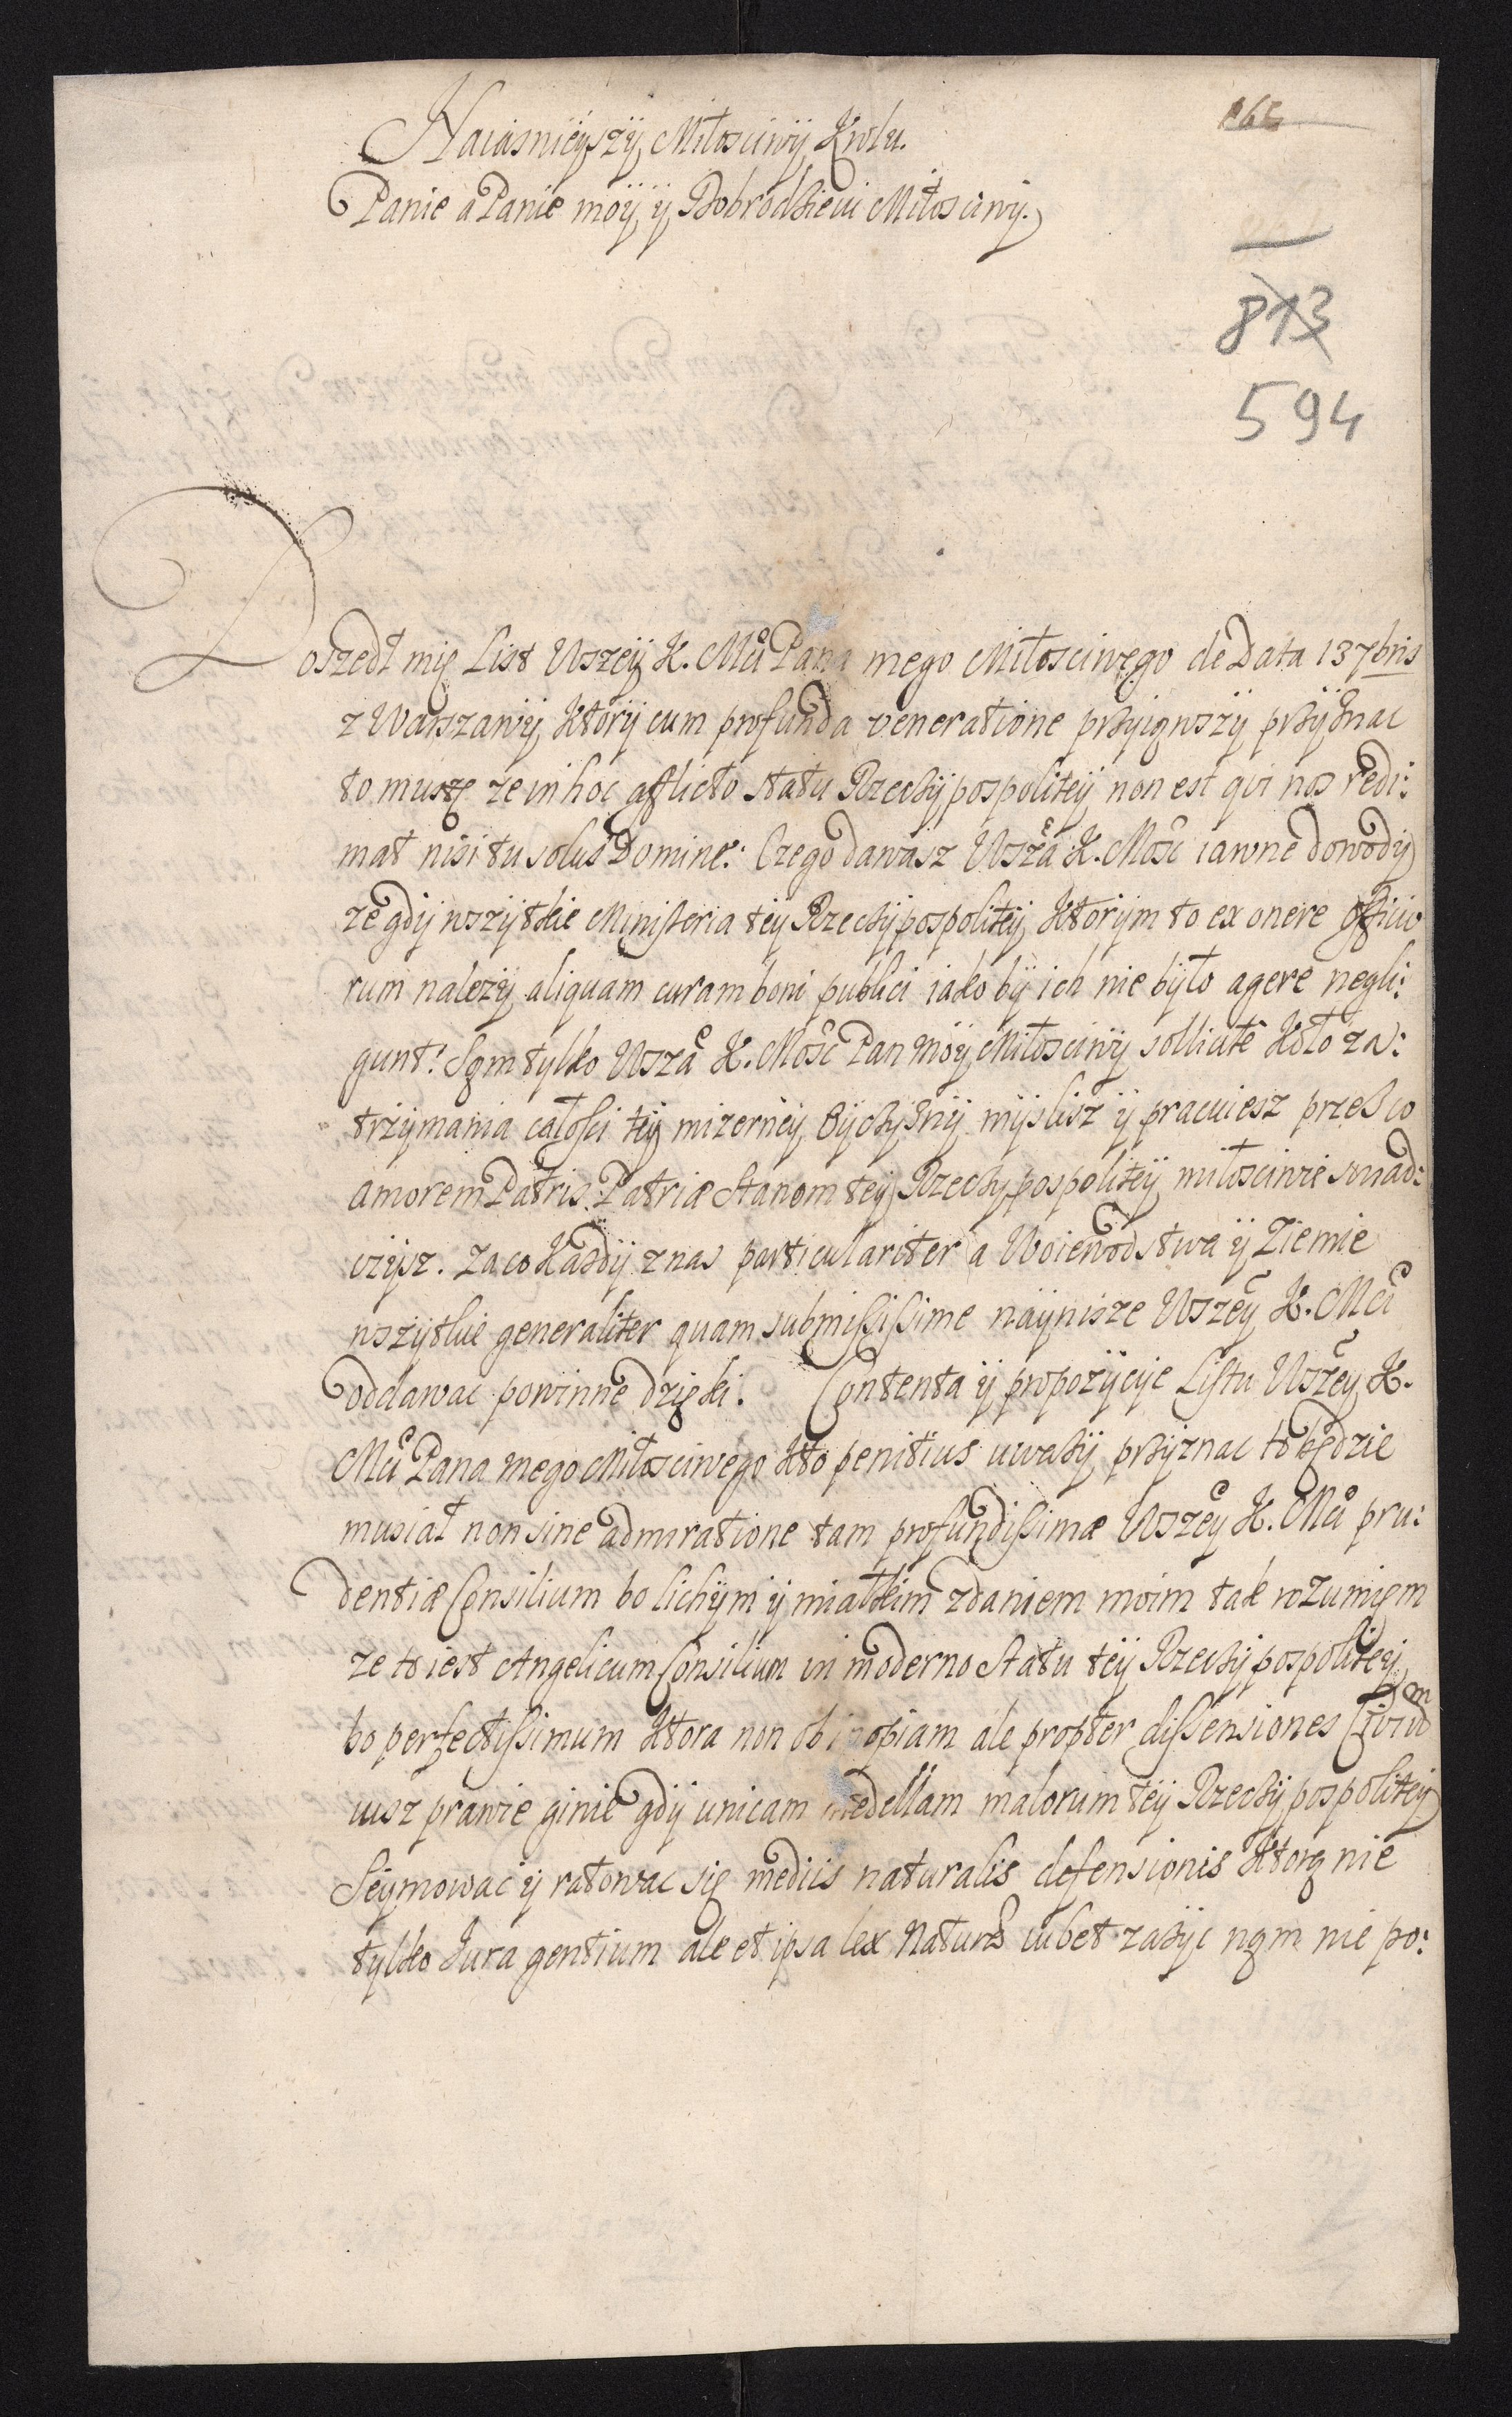 Naiasnieÿszÿ Miłosciwÿ Krolu.
Panie a Panie moÿ ÿ Dobrodzieiu Miłosciwÿ.
813
594
Doszedł mię List Wszeÿ K. Mci Pana mego Miłosciwego de Data 13 7bris
z Warszawÿ, ktorÿ cum profunda veneratione przÿiąwszÿ przÿznac
to muszę ze in hoc afflicto statu Rzeczÿpospoliteÿ non est qui nos redi:
mat nisi tu solus Domine: Czego dawasz Wsza K. Mosc iawne dowodÿ
ze gdÿ wszÿtkie Ministeria teÿ Rzeczÿpospoliteÿ, ktorÿm to ex onere officio
rum nalezÿ aliquam curam boni publici iako bÿ ich nie bÿło agere negli:
gunt: Sąm tylko Wsza K. Mosc Pan moÿ Miłosciwÿ sollicite koło za:
trzÿmania całosci teÿ mizerneÿ Oÿczÿznÿ mÿslisz ÿ pracuiesz przez co
amorem Patris Patriæ Stanom teÿ Rzeczÿpospoliteÿ miłosciwie swiad:
czÿsz. Za co kazdÿ z nas particulariter a Woiewodstwa ÿ Ziemie
wszÿtkie generaliter quam submississime naÿnisze Wszeÿ K. Mci
oddawac powinne dzięki. Contenta ÿ propozÿcÿe Listu Wszeÿ K.
Mci Pana mego Miłosciwego kto penitius uwazÿ przÿznac to będzie
musiał non sine admiratione tam profundissimæ Wszeÿ K. Mci pru:
dentiæ Consilium bo lichÿm ÿ miałkim zdaniem moim tak rozumięm
ze to iest Angelicum Consilium in moderno Statu teÿ Rzeczÿpospoliteÿ
bo perfectissimum ktora non ob inopiam ale propter dissensiones Civium
iusz prawie ginie gdÿ unicam medellam malorum teÿ Rzeczÿpospoliteÿ
Seÿmowac ÿ ratowac się mediis naturalis defensionis ktorą nie
tylko Jura gentium ale et ipsa lex Naturæ iubet zazÿc nąm nie po: